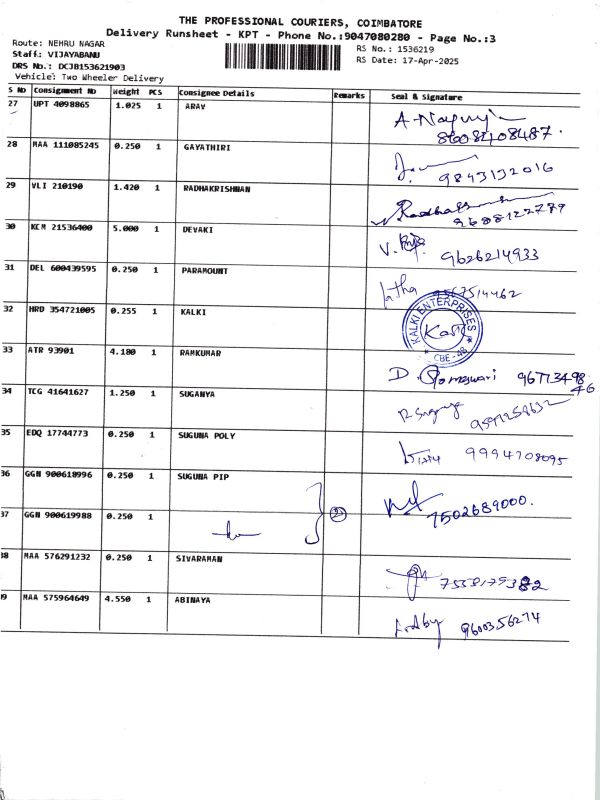 THE PROFESSIONAL COURIERS, COIMBATORE
Delivery Runsheet - KPT - Phone No.:9047080280 - Page No.:3
Route: NEHRU NAGAR
Staff: VIJAYABANU
DRS No.: DCJB153621903
Vehicle: Two Wheeler Delivery
RS No.: 1536219
RS Date: 17-Apr-2025
S No Consignment No Weight PCS Consignee Details Remarks Seal & Signature
27 UPT 4098865 1.025 1 ARAV
8608408487.
28 MAA 111085245 0.250 1 GAYATHIRI
9843132016
29 VLI 210190 1.420 1 RADHAKRISHNAN
9688122779
30 KCM 21536400 5.000 1 DEVAKI
9626214933
31 DEL 600439595 0.250 1 PARAMOUNT
latha
32 HRD 354721005 0.255 1 KALKI
KALKI ENTERPRISES
CBE-48
33 ATR 93901 4.180 1 RAMKUMAR
34 TCG 41641627 1.250 1 SUGANYA
35 EDQ 17744773 0.250 1 SUGUNA POLY
9994708095
36 GGN 900618996 0.250 1 SUGUNA PIP
7502689000.
37 GGN 900619988 0.250 1
2
38 MAA 576291232 0.250 1 SIVARAMAN
39 MAA 575964649 4.550 1 ABINAYA
9600356274